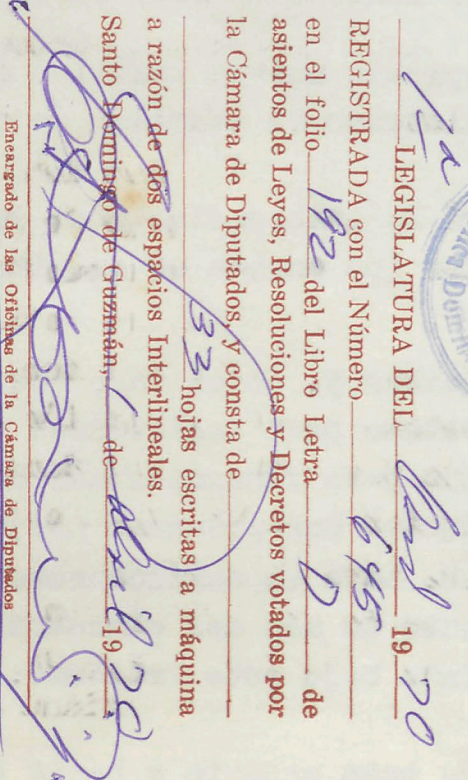 1a LEGISLATURA DEL 19 70
REGISTRADA con el Número 645
en el folio 192 del Libro Letra D de
asientos de Leyes, Resoluciones y Decretos votados por
la Cámara de Diputados y consta de
33 hojas escritas a máquina
a razón de dos espacios Interlineales.
Santo Domingo de Guzmán, 1 de abril 19 70
Encargado de las Oficinas de la Cámara de Diputados